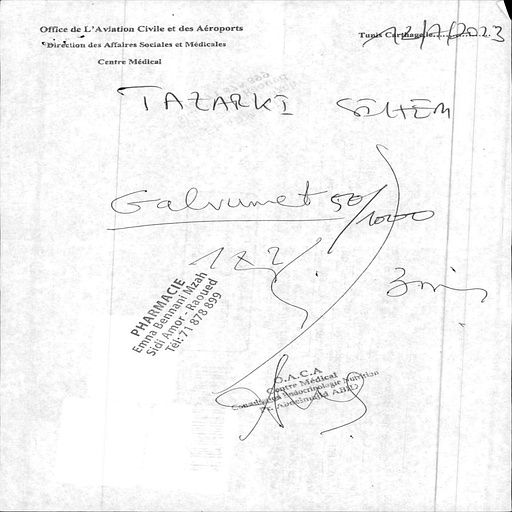 Office de L'Aviation Civile et des Aéroports
Direction des Affaires Sociales et Médicales
Centre Médical
Tunis Carthage le 12/7/2023
TAZARKI SIHEM
Galvumet 50/1000
1x2/j
3 mois
PHARMACIE
Emna Bennani Mzah
Sidi Amor - Raoued
Tél: 71 878 899
O.A.C.A
Centre Médical
Endocrinologie Nutrition